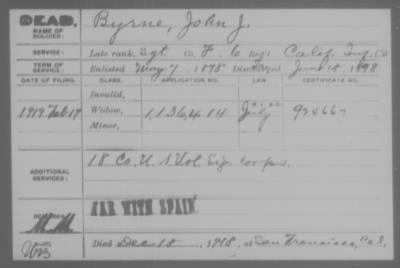 DEAD.
NAME OF SOLDIER:
Byrne, John J.
SERVICE:
Late rank, Sgt Co. F, 6 Reg't Calif. Inf.
TERM OF SERVICE:
Enlisted May 7, 1898 Discharged June 18, 1898
DATE OF FILING. CLASS. APPLICATION NO. LAW. CERTIFICATE NO.
Invalid,
1919 Feb 17 Widow, 1,136,414 July 924667
Minor,
ADDITIONAL SERVICES:
18 Co. U. S. Vol. Sig. Corps.
REMARKS:
WAR WITH SPAIN.
Died Dec 18, 1918, at San Francisco, Cal,